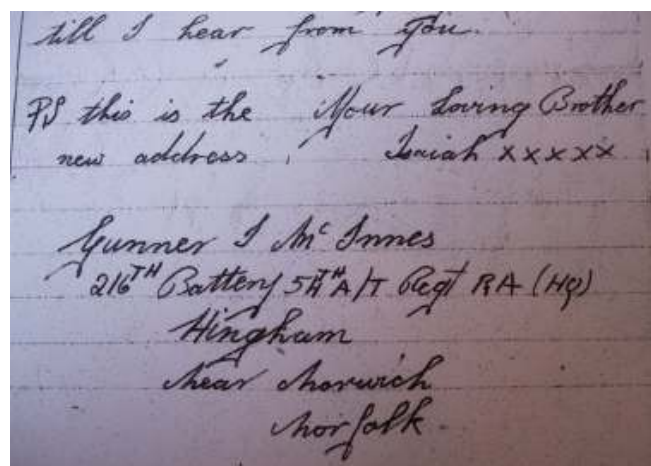 till I hear from you.
PS this is the Your Loving Brother
new address, Isaiah xxxxx
Gunner I McInnes
216TH Battery 54TH A/T Regt RA (HQ)
Hingham
Near Norwich
Norfolk.